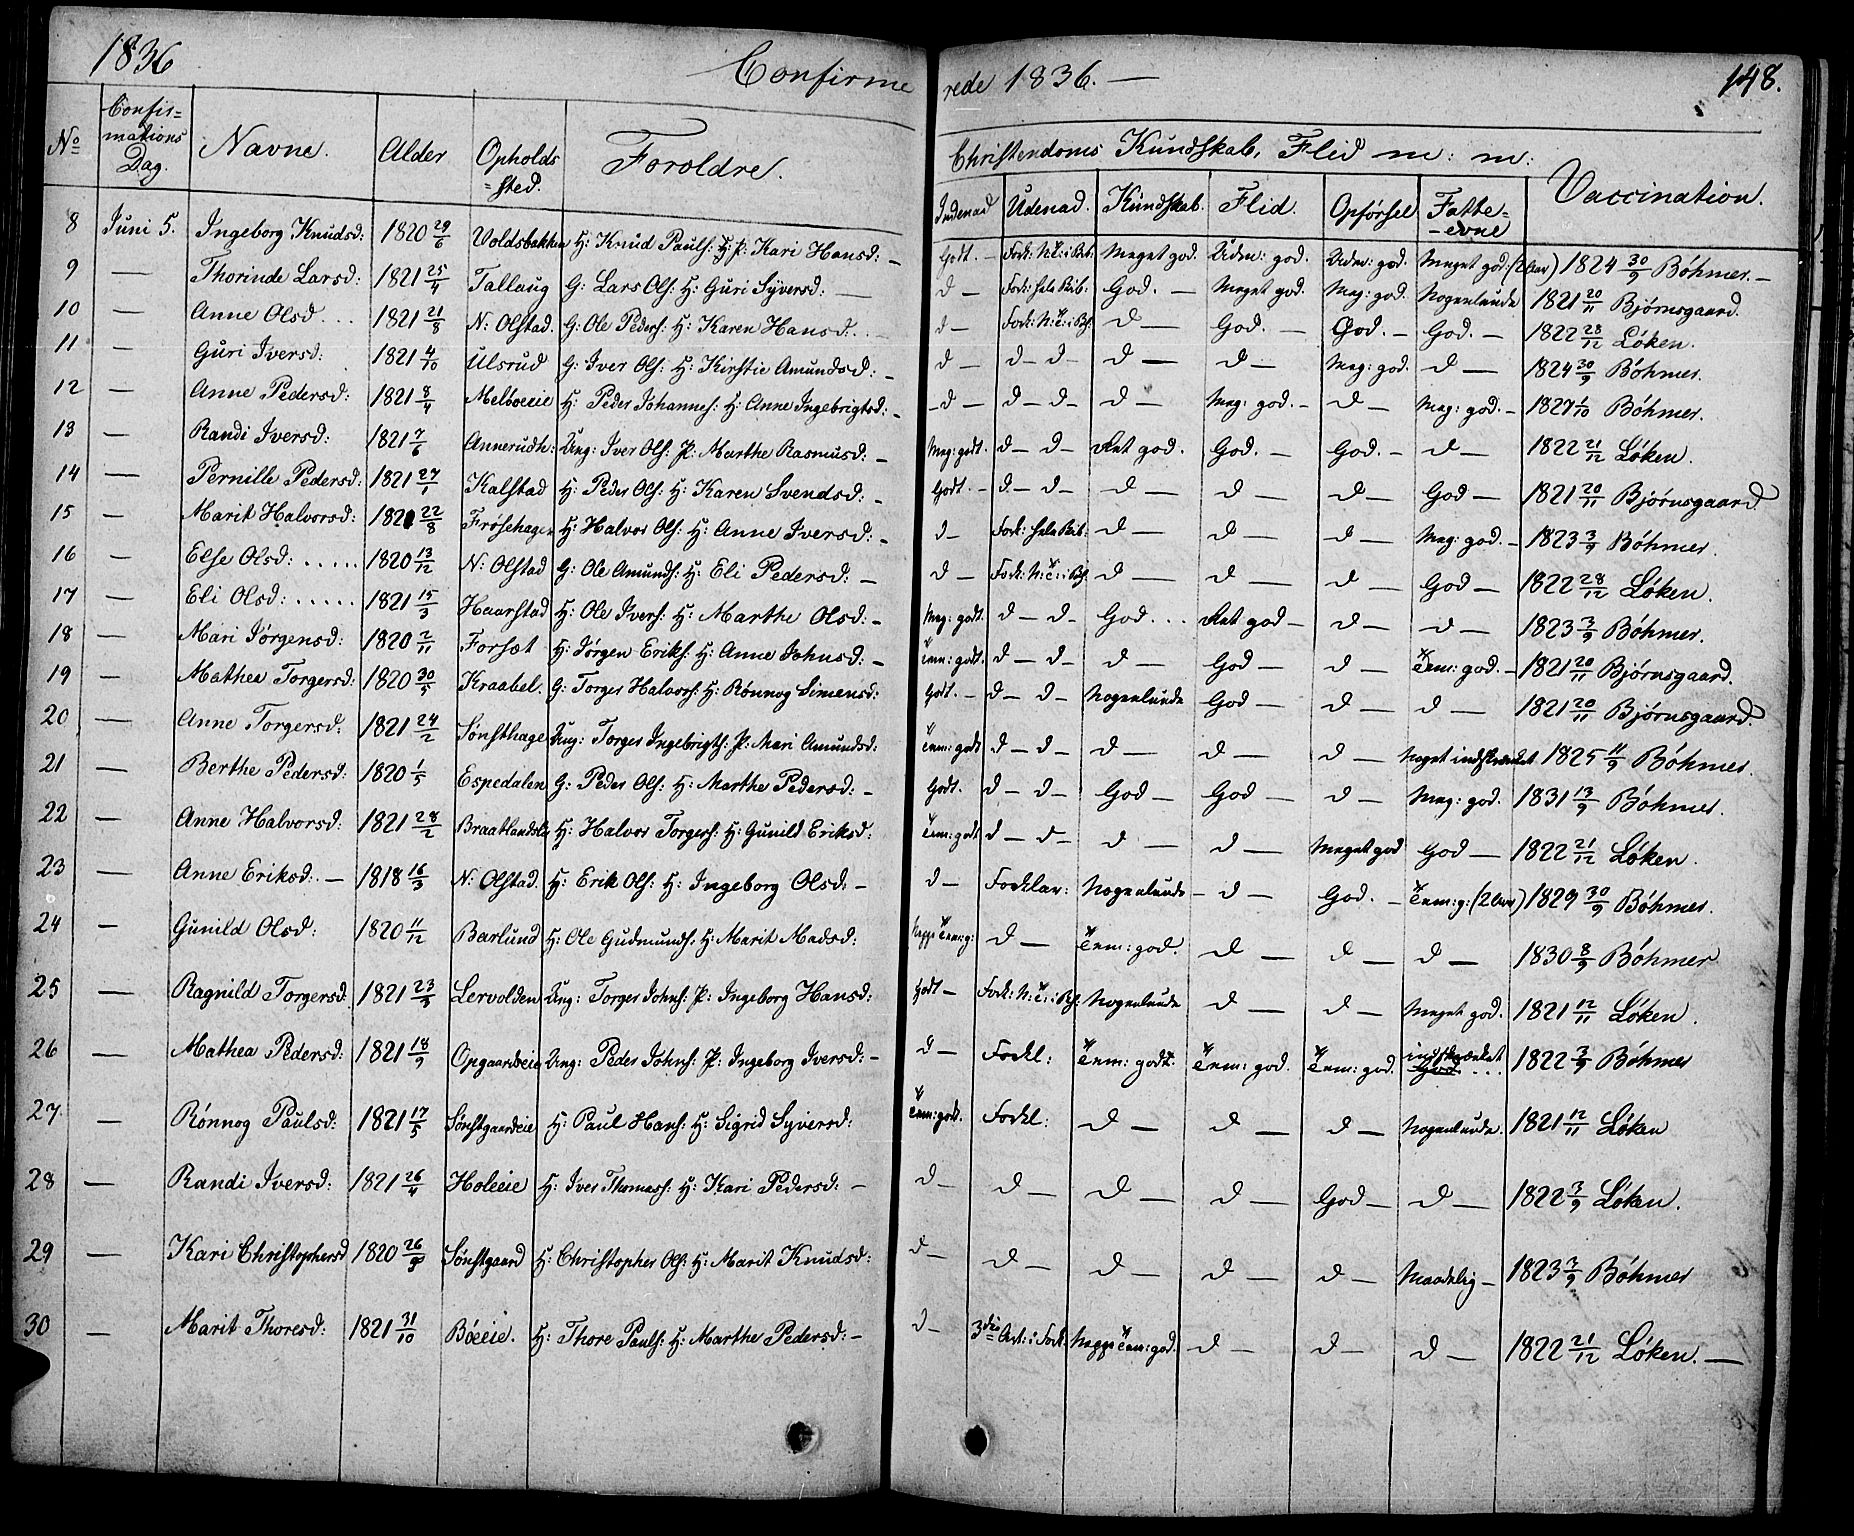 1836
Confirme
rede 1836. —
148.
No Confirmations Dag. Navne. Alder Opholds=sted. Foroldre.
Christendoms Kundskab, Flid m: m: Vaccination.
Indenad Udenad. Kundskab. Flid. Opførsel Fatte=evne
8 Juni 5. Ingeborg Knudsd: 1820 29/6 Voldsbakken H: Knud Pauls: & P. Kari Hansd: — Godt. — Meget god Uden: god. Uden: god. Meget god: (2 Ser) 1824 30/9 Böhmer. —
9 — Thorinde Larsd: 1821 25/4 Tallaug G: Lars Ols: H: Guri Syversd: — d — Fork: hele Bib: God. — Meget god. Meg: god. Nogenlunde 1821 20/11 Bjørnsgaard.
10 — Anne Olsd . . 1821 21/8 N: Olstad. G: Ole Peders: H: Karen Hansd. . — d — d — God. — God. — God. — 1822 28/12 Løken.
11 — Guri Iversd: 1821 4/10 Ulsrud G: Iver Ols: H: Kirstie Amundsd: — d — d — d — d — d — Meg: god. d — 1824 30/9 Böhmer.
12 — Anne Pedersd: 1821 8/4 Melboeeie H: Peder Johannes: H: Anne Ingebrigtsd: — — d — d — d — d — Meg: god. — d — Meg: god. — 1827 1/10 Böhmer.
13 — Randi Iversd: 1821 7/6 Annerudh: Ung: Iver Ols: P: Marthe Rasmusd: — Meg: godt. d — d — Ret god. God. — God. — d — 1822 21/12 Løken.
14 — Pernille Pedersd: 1821 27/1 Kalstad H: Peder Ols: H: Karen Svendsd: — Godt. — d — d — d — d — d — God — 1821 20/11 Bjørnsgaard
15 — Marit Halvorsd: 1821 22/8 Frösehagen H: Halvor Ols: H: Anne Iversd: — d — Fork: hele Bib: d — d — d — Meg: god. — 1823 3/9 Böhmer.
16 — Else Olsd: . . . . . 1820 13/12 N: Olstad G: Ole Amunds: H: Eli Pedersd: — d — d — d — d God — 1822 28/12 Løken.
17 — Eli Olsd: . . . . . 1821 15/3 Haarstad H: Ole Ivers: H: Marthe Olsd: — Meg: godt. d — d — God . . . Ret god — d — d — 1823 3/9 Böhmer.
18 — Mari Jörgensd: 1820 2/11 Forsæt H: Jörgen Eriks: H: Anne Johnsd: — Tem: godt. d — d — d — God — d — Tem: god. — 1821 20/11 Bjørnsgaard.
19 — Mathea Torgersd: 1820 30/5 Kraabel. G: Torger Halvors: H: Rönnog Simensd: Godt. — d — d — Nogenlunde God — d — d — 1821 20/11 Bjørnsgaard.
20 — Anne Torgersd: 1821 24/2 Sönsthagen Ung: Torger Ingebrigts: P: Mari Amundsd: Tem: godt d — d — d — d — d — Noget indskrænket 1825 11/9 Böhmer.
21 — Berthe Pedersd: 1820 1/5 Espedalen G: Peder Ols: H: Marthe Pedersd: — Godt. d — d — God — God — d — Meg: god. 1831 13/9 Böhmer.
22 — Anne Halvorsd: 1821 28/2 H: Halvor Torgers: H: Gunild Eriksd: Tem: godt d — d — d — d — Meget god God — 1822 21/12 Løken.
23 — Anne Eriksd: — 1818 16/3 N: Olstad. H: Erik Ols: H: Ingeborg Olsd: — d — Forklar: Nogenlunde — d — God. — Tem: g: (2 Ser) 1829 30/9 Böhmer.
24 — Gunild Olsd: 1820 11/12 Barlund H: Ole Gudmunds: H: Marit Madsd: Neppe Tem: g: d — Tem: god. d — d — d — 1830 8/9 Böhmer
25 — Ragnild Torgersd: 1821 23/5 Lervolden Ung: Torger Johns: P: Ingeborg Hansd: Godt — Nogenlunde d — d — Meget god. 1821 12/11 Løken.
26 — Mathea Pedersd: 1821 18/9 Opgaardeie Ung: Peder Johns: P: Ingeborg Iversd: — d — Forkl: Tem: godt. Tem: god. Tem: god. indskrænket God . . . 1822 3/9 Böhmer
27 — Rönnog Paulsd: 1821 17/5 Sönstgaardeie H: Paul Hans: H: Sigrid Syversd: Tem: godt. Forkl: d — d — d — Nogenlunde. 1821 12/11 Løken
28 — Randi Iversd: 1821 26/4 Holeeie H: Iver Thomas: H: Kari Pedersd: — d — d — d — d — God — d — 1822 3/9 Løken.
29 — Kari Christophersd 1820 26/9 Sönstgaard H: Christopher Ols: H: Marit Knudsd: d — d — d — d — d — Maadelig — 1823 3/9 Böhmer
30 — Marit Thoresd: 1821 31/10 Böeeie. H: Thore Pauls: H: Marthe Pedersd: — d — 3die Art: i Fork: Neppe Tem: god. d — d — d — 1822 21/12 Løken. —